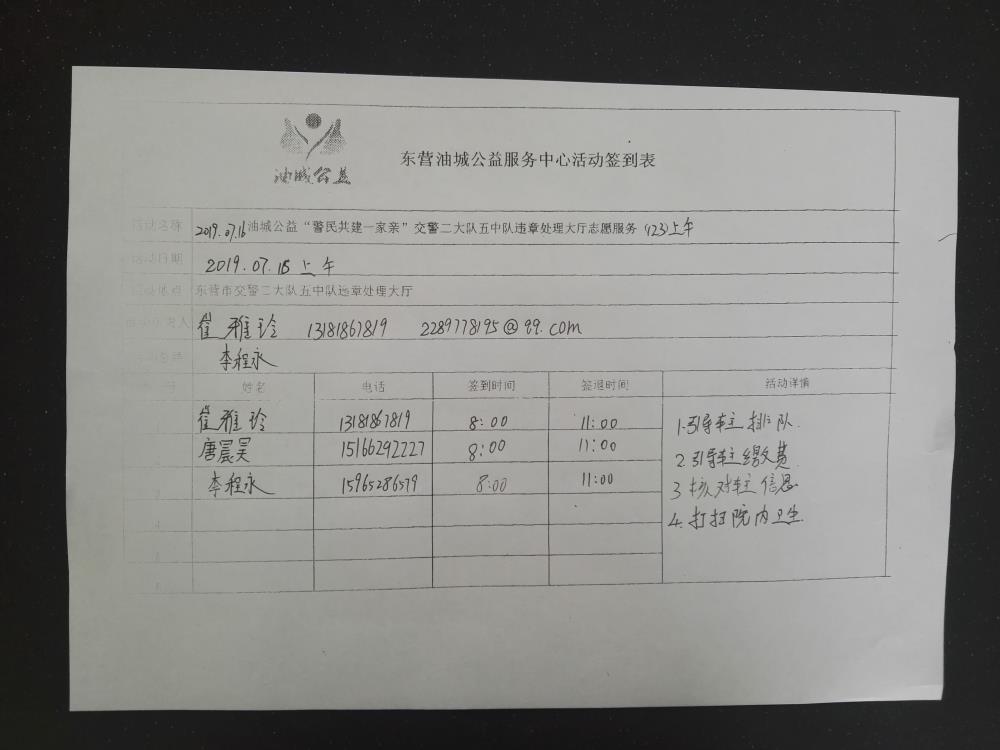 油城公益
东营油城公益服务中心活动签到表
活动名称 2019.07.16油城公益“警民共建一家亲”交警二大队五中队违章处理大厅志愿服务 (123)上午
活动日期 2019.07.16 上午
活动地点 东营市交警二大队五中队违章处理大厅
崔雅玲 13181867819 2289778195@qq.com
李程永
姓名 电话 签到时间 签退时间 活动详情
1 崔雅玲 13181867819 8:00 11:00 1.引导车主排队.
2 唐晨昊 15166292227 8:00 11:00 2.引导车主缴费.
3 李程永 15965286579 8:00 11:00 3.核对车主信息.
4 4.打扫院内卫生.
5
6